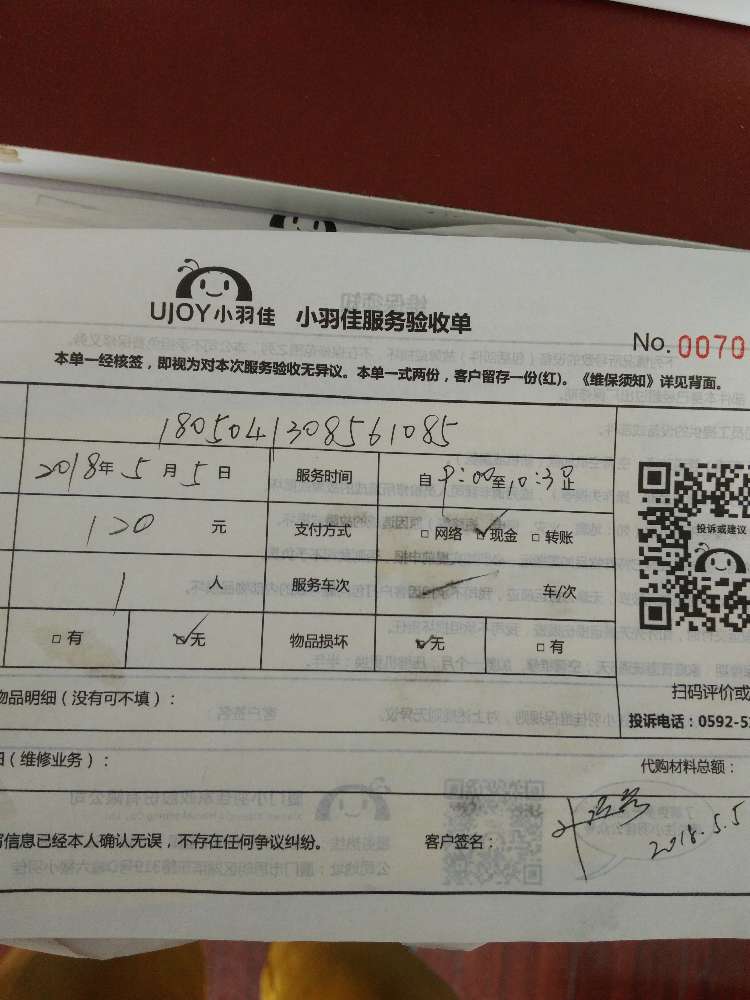 UJOY小羽佳 小羽佳服务验收单
No. 0070
本单一经核签，即视为对本次服务验收无异议。本单一式两份，客户留存一份(红)。《维保须知》详见背面。
1805041308561085
2018年5月5日 服务时间 自9:00至10:30止
120元 支付方式 □网络 ☑现金 □转账
投诉或建议
1人 服务车次 车/次
□有 ☑无 物品损坏 ☑无 □有
物品明细（没有可不填）：
扫码评价或
投诉电话：0592-5
（维修业务）：
代购材料总额：
信息已经本人确认无误，不存在任何争议纠纷。 客户签名： 2018.5.5